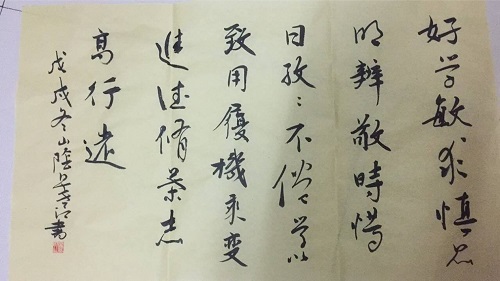 好学敏求慎思
明辨敬時惜
日孜〻不倦学以
致用履機乘变
進德脩業志
高行遠
戊戌冬山陰書